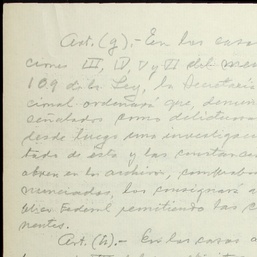 Art. (g).- En los casos
ciones III, IV, V y VI del
109 de la Ley, la Secretaría
cional ordenará que, denun
señalados como delictuosos
desde luego una investigac
tado de esta y las constancias
obren en los archivos, comprobados
nunciados, los consignará a
Federal remitiendo las c
nentes.
Art. (h).- En los casos a